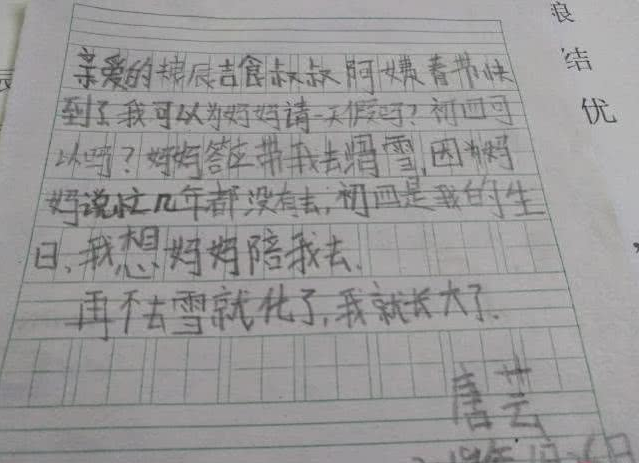 亲爱的辣辰吉食叔叔阿姨春节快
到了我可以为妈妈请一天假吗?初四可
以吗?妈妈答应带我去滑雪,因为妈
妈说忙几年都没有去,初四是我的生
日,我想妈妈陪我去.
再不去雪就化了,我就长大了.
唐芸
浪
结
优